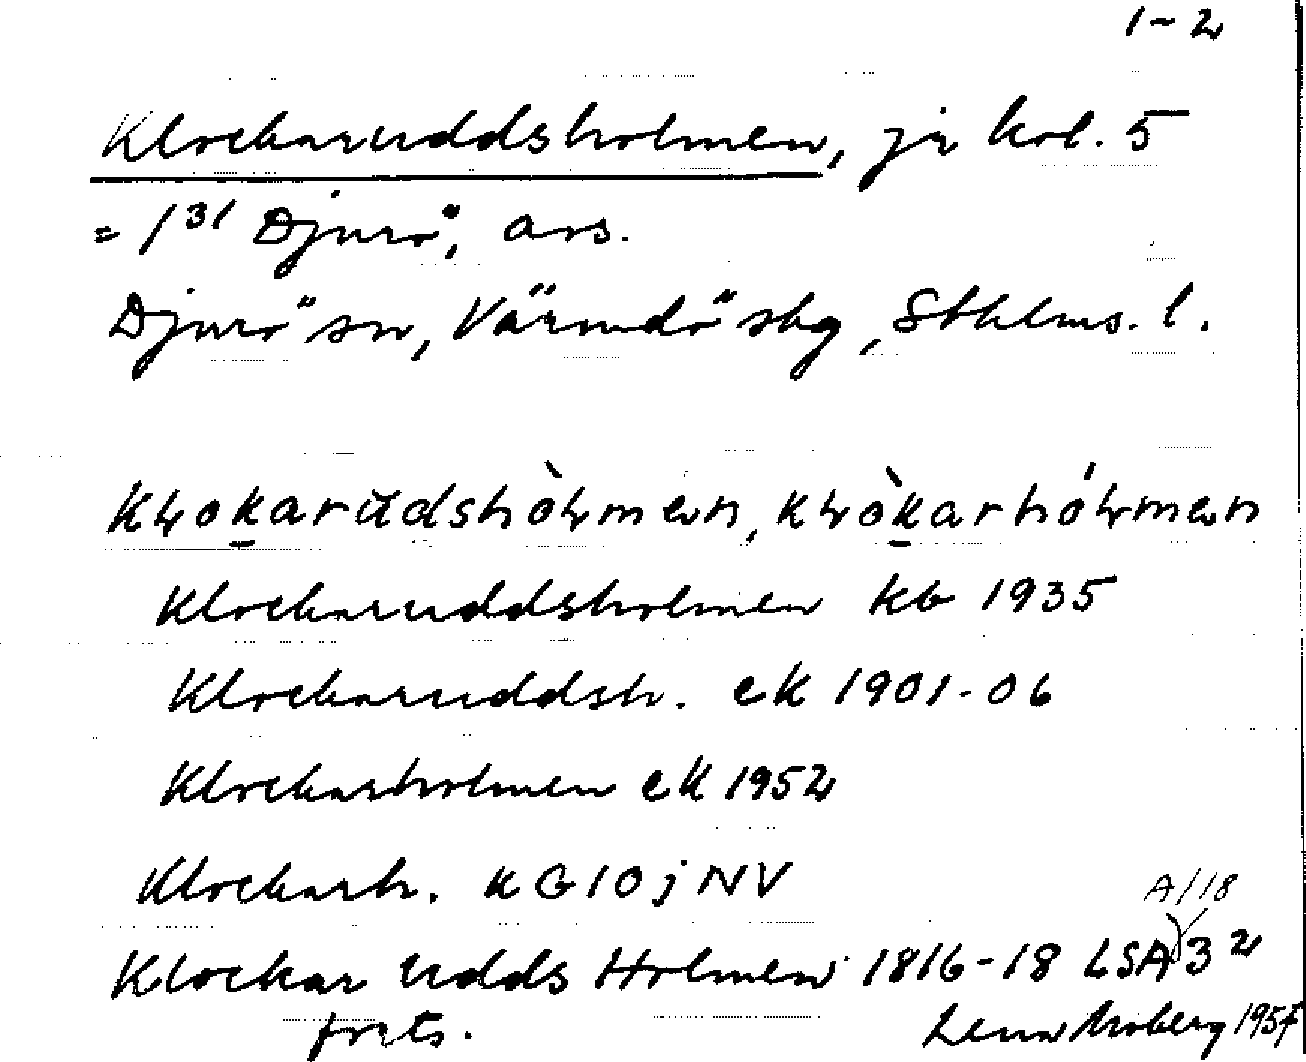 1-2
Klockaruddsholmen, jr kol. 5
= 1³¹ Djurö, avs.
Djurö sn, Värmdö skg, Sthlms. l.
Klockaruddsholmen kb 1935
Klockaruddsh. ek 1901-06
Klockarholmen ek 1952
Klockarh. KG10jNV
A/18
Klockar Udds Holmen 1816-18 LSA 3²
forts.
Lena Moberg 1957